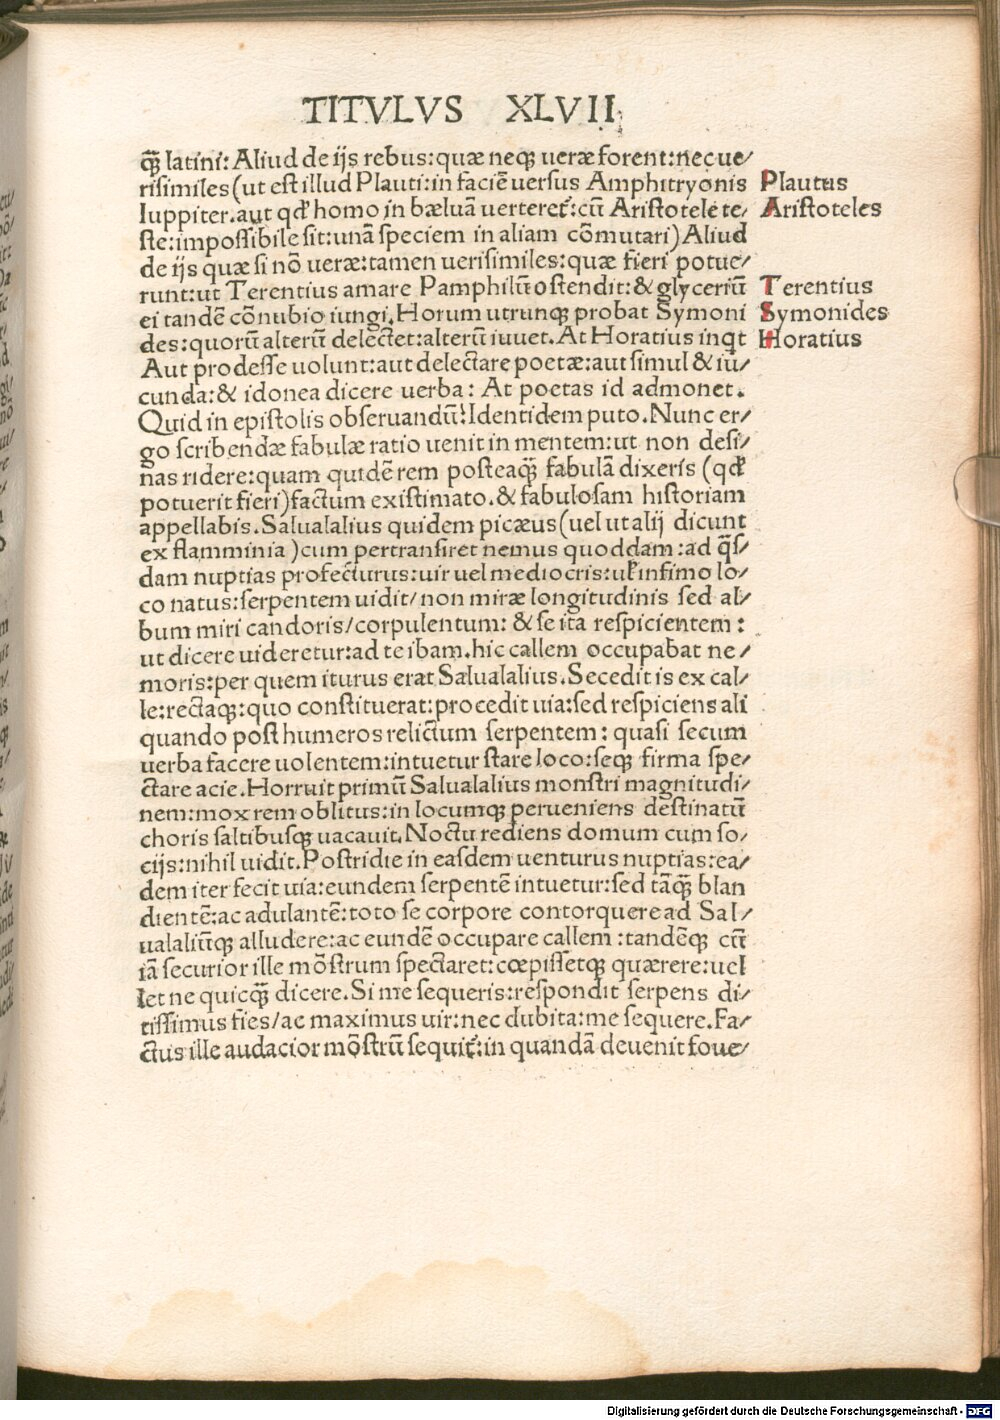 TITVLVS XLVII
qꝫ̃ latini: Aliud de ijs rebus: quæ neqꝫ ueræ forent: nec ue/
risimiles (ut est illud Plauti: in faciē uersus Amphitryonis
Plautus
Iuppiter. aut qd' homo in bæluā uerteret᷑: cū Aristotele te/
Aristoteles
ste: impossibile sit: unā speciem in aliam cōmutari) Aliud
de ijs quæ si nō ueræ: tamen uerisimiles: quæ fieri potue/
runt: ut Terentius amare Pamphilū ostendit: & glyceriū
Terentius
ei tandē cōnubio iungi. Horum utrunqꝫ probat Symoni
Symonides
des: quorū alterū delectet: alterū iuuet. At Horatius inqt
Horatius
Aut prodesse uolunt: aut delectare poetæ: aut simul & iu/
cunda: & idonea dicere uerba: At poetas id admonet.
Quid in epistolis obseruandū! Identidem puto. Nunc er/
go scribendæ fabulæ ratio uenit in mentem: ut non desi/
nas ridere: quam quidē rem posteaqꝫ̃ fabulā dixeris (qd'
potuerit fieri) factum existimato. & fabulosam historiam
appellabis. Salualalius quidem picæus (uel ut alij dicunt
ex flamminia) cum pertransiret nemus quoddam: ad q̄s/
dam nuptias profecturus: uir uel mediocris: ul' infimo lo/
co natus: serpentem uidit/ non miræ longitudinis sed al/
bum miri candoris/ corpulentum: & se ita respicientem:
ut dicere uideretur: ad te ibam. hic callem occupabat ne/
moris: per quem iturus erat Salualalius. Secedit is ex cal/
le: rectaqꝫ: quo constituerat: procedit uia: sed respiciens ali
quando post humeros relictum serpentem: quasi secum
uerba facere uolentem: intuetur stare loco: seqꝫ firma spe/
ctare acie. Horruit primū Salualalius monstri magnitudi/
nem: mox rem oblitus: in locumqꝫ perueniens destinatū
choris saltibusqꝫ uacauit. Noctu rediens domum cum so/
cijs: nihil uidit. Postridie in easdem uenturus nuptias: ea/
dem iter fecit uia: eundem serpentē intuetur: sed tāqꝫ̃ blan
dientē: ac adulantē: toto se corpore contorquere ad Sal/
ualaliūqꝫ alludere: ac eundē occupare callem: tandēqꝫ cū
iā securior ille mōstrum spectaret: cœpissetqꝫ quærere: uel
let ne quicqꝫ̃ dicere. Si me sequeris: respondit serpens di/
tissimus fies/ ac maximus uir: nec dubita: me sequere. Fa/
ctus ille audacior mōstrū sequit᷑: in quandā deuenit foue/
Digitalisierung gefördert durch die Deutsche Forschungsgemeinschaft - DFG